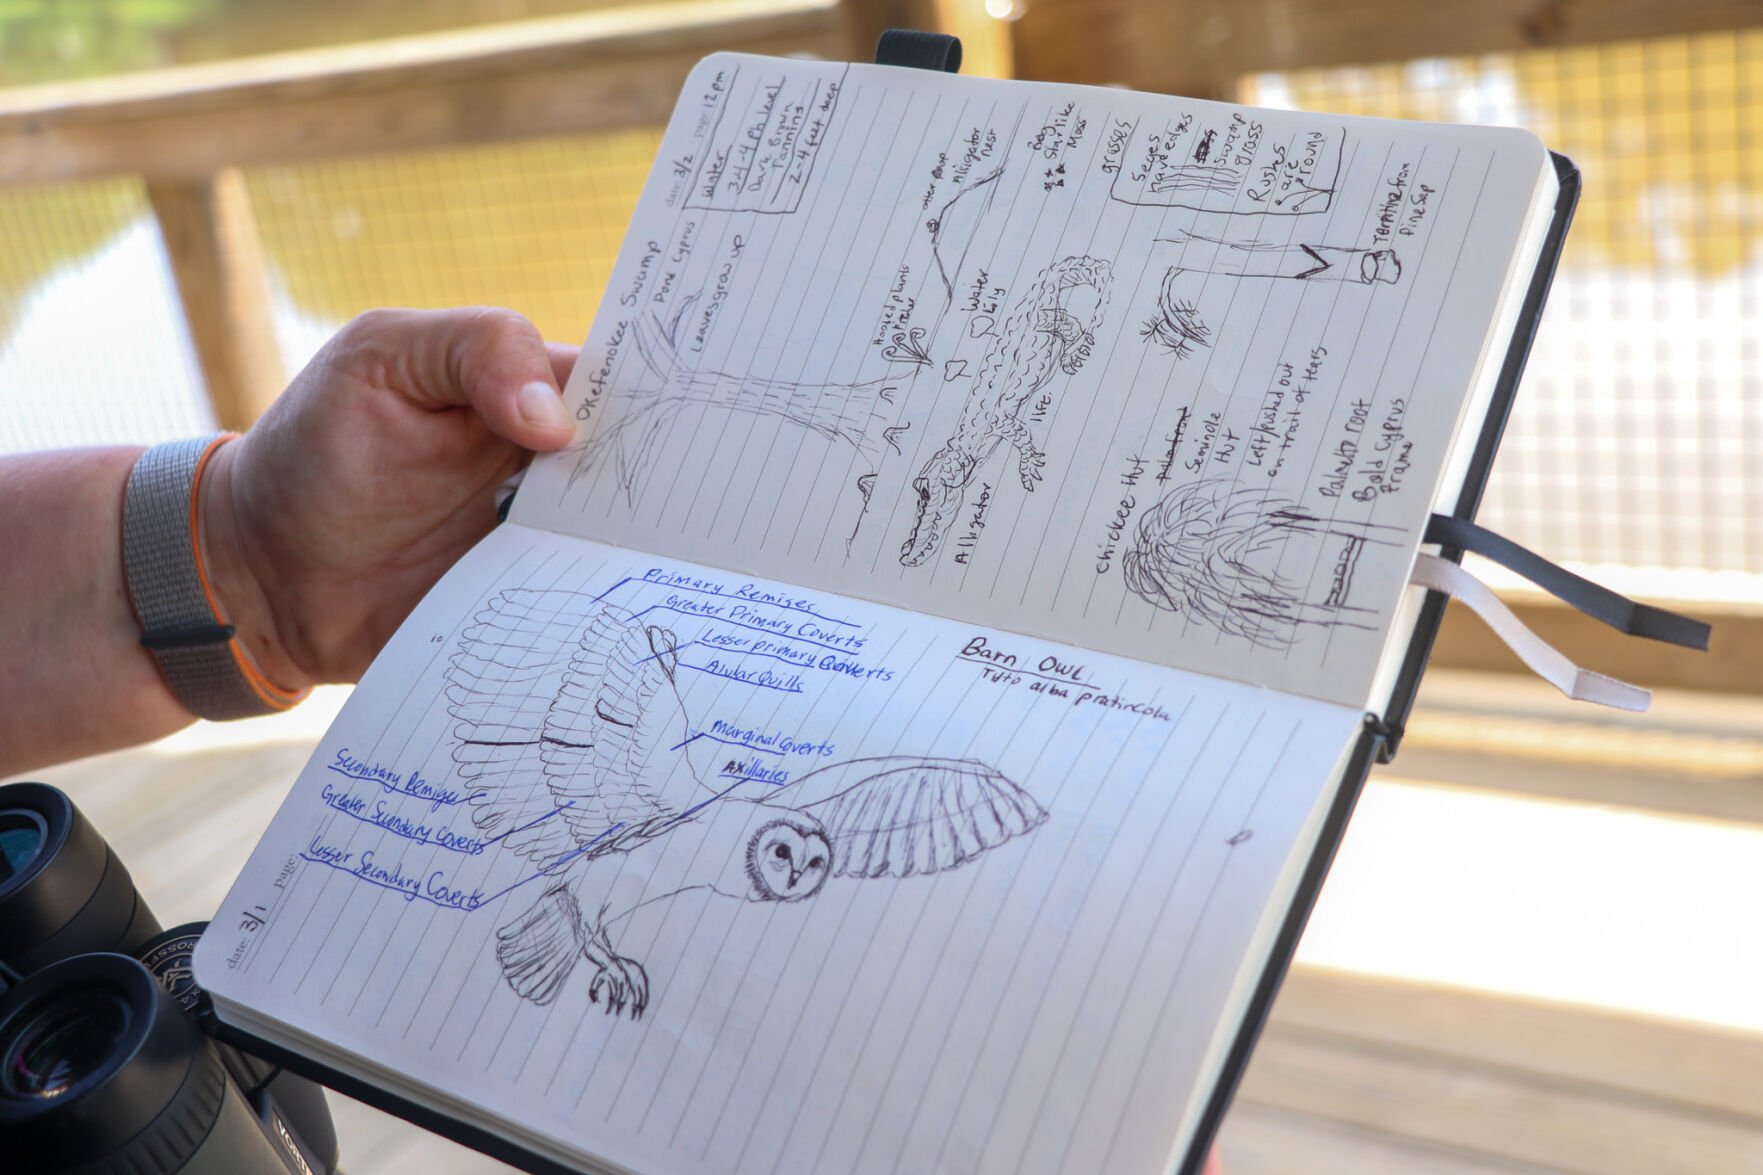 date: 3/2 page: 12pm
Water
3.4-4 Ph level
Dark Brown
Tannins
2-4 feet deep
Okefenokee Swamp
Pond Cyprus
Leaves grow up
Hooded plants
Pitcher
otter poop
Alligator
nest
Water
Lily
Alligator
Bog
Star like
Moss
grasses
Seges
have edges
swamp
grass
Rushes
are
round
Terpitine from
Pine Sap
Chickee Hut
Seminole
Hut
Left/pushed out
on trail of tears
Palmeto root
Bald Cyprus
Frame
date: 3/1 page:
Barn Owl
Tyto alba pratincola
Primary Remiges
Greater Primary Coverts
Lesser primary Coverts
Alular Quills
Marginal Coverts
Axillaries
Secondary Remiges
Greater Secondary Coverts
Lesser Secondary Coverts